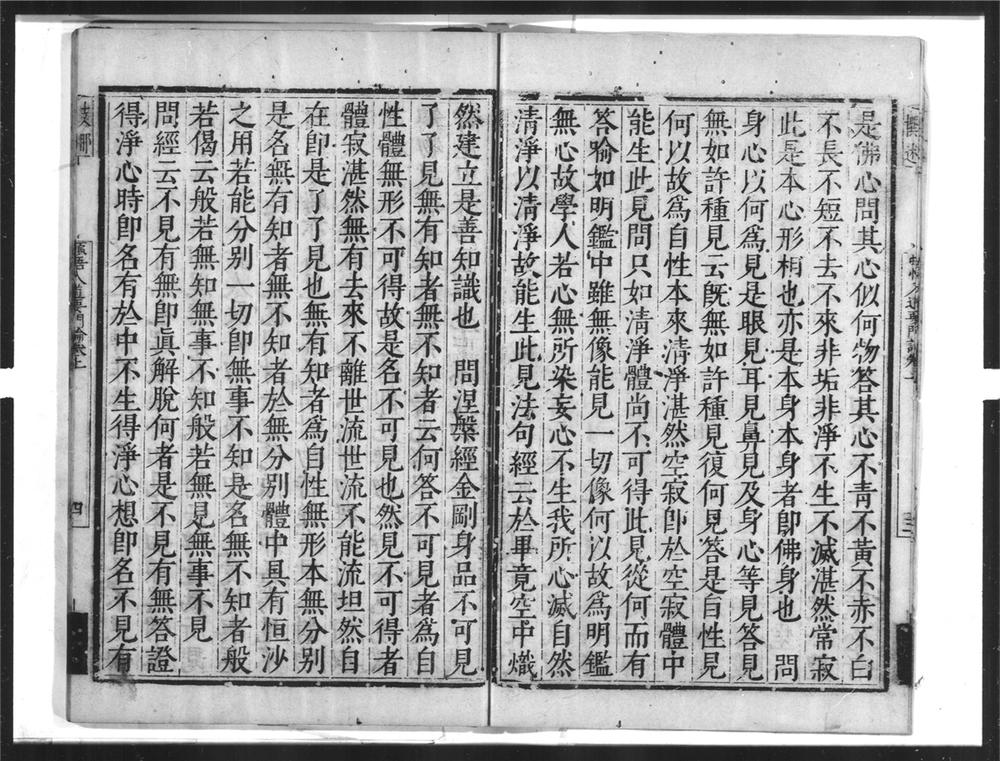 是佛心問其心似何物答其心不青不黃不赤不白
不長不短不去不來非垢非淨不生不滅湛然常寂
此是本心形相也亦是本身本身者卽佛身也 問
身心以何爲見是眼見耳見鼻見及身心等見答見
無如許種見云旣無如許種見復何見答是自性見
何以故爲自性本來清淨湛然空寂卽於空寂體中
能生此見問只如清淨體尚不可得此見從何而有
答喻如明鑑中雖無像能見一切像何以故爲明鑑
無心故學人若心無所染妄心不生我所心滅自然
清淨以清淨故能生此見法句經云於畢竟空中熾
然建立是善知識也 問涅槃經金剛身品不可見
了了見無有知者無不知者云何答不可見者爲自
性體無形不可得故是名不可見也然見不可得者
體寂湛然無有去來不離世流世流不能流坦然自
在卽是了了見也無有知者爲自性無形本無分別
是名無有知者無不知者於無分別體中具有恒沙
之用若能分別一切卽無事不知是名無不知者般
若偈云般若無知無事不知般若無見無事不見
問經云不見有無卽眞解脫何者是不見有無答證
得淨心時卽名有於中不生得淨心想卽名不見有
四